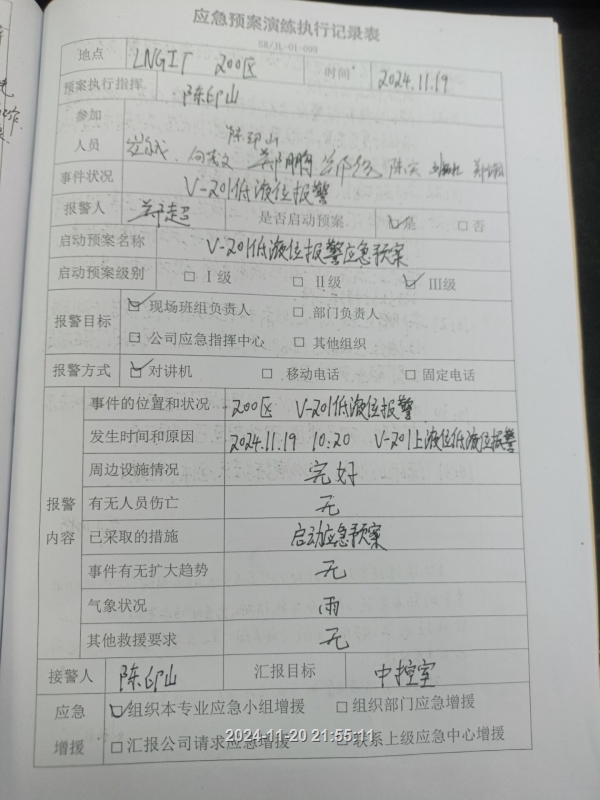 应急预案演练执行记录表
SR/JL-01-099
地点 LNG工厂 200区 时间 2024.11.19
预案执行指挥 陈印山
参加
人员 陈印山
事件状况 V-201低液位报警
报警人 郑超 是否启动预案 ☑是 □否
启动预案名称 V-201低液位报警应急预案
启动预案级别 □Ⅰ级 □Ⅱ级 ☑Ⅲ级
报警目标 ☑现场班组负责人 □部门负责人
□公司应急指挥中心 □其他组织
报警方式 ☑对讲机 □移动电话 □固定电话
报警内容
事件的位置和状况 200区 V-201低液位报警
发生时间和原因 2024.11.19 10:20 V-201上液位低液位报警
周边设施情况 完好
有无人员伤亡 无
已采取的措施 启动应急预案
事件有无扩大趋势 无
气象状况 雨
其他救援要求 无
接警人 陈印山 汇报目标 中控室
应急 ☑组织本专业应急小组增援 □组织部门应急增援
增援 □汇报公司请求应急增援 □联系上级应急中心增援
2024-11-20 21:55:11